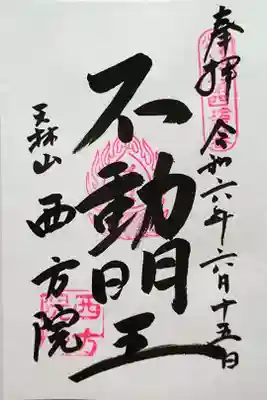 奉拝 令和六年六月十五日
不動明王
天林山 西方院
西方院